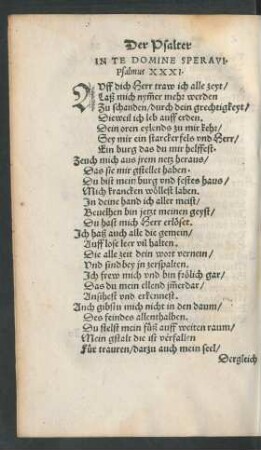 Der Psalter
IN TE DOMINE SPERAVI.
Psalmus XXXI.
AUff dich Herr traw ich alle zeyt/
Laß mich nym̃er mehr werden
Zu schanden/durch dein grechtigkeyt/
Dieweil ich leb auff erden.
Dein oren eylends zu mir kehr/
Sey mir ein starcker fels vnd Herr/
Ein burg das du mir helffest.
Zeuch mich aus jrem netz heraus/
Das sie mir gstellet haben.
Du bist mein burg vnd festes haus/
Mich krancken wöllest laben.
In deine hand ich aller meist/
Beuelhen bin jetzt meinen geyst/
Du hast mich Herr erlöset.
Ich haß auch alle die gemein/
Auff lose leer vil halten.
Die alle zeit dein wort vernein/
Vnd sind bey jn zerspalten.
Ich frew mich vnd bin frölich gar/
Das du mein ellend jm̃erdar/
Ansihest vnd erkennest.
Auch gibstu mich nicht in den daum/
Des feindes allenthalben.
Du stelst mein füß auff weiten raum/
Mein gstalt die ist verfallen
Für trauren/darzu auch mein seel/
Dergleich